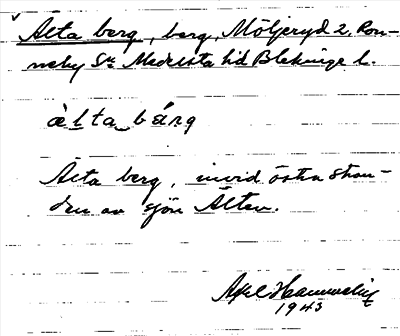 Älta berg, berg, Möljeryd 2, Ron-
neby Sn Medelsta hd Blekinge l.
ä̀lta bárg
Älta berg, invid östra stran-
den av sjön Ältan.
Axel
1943